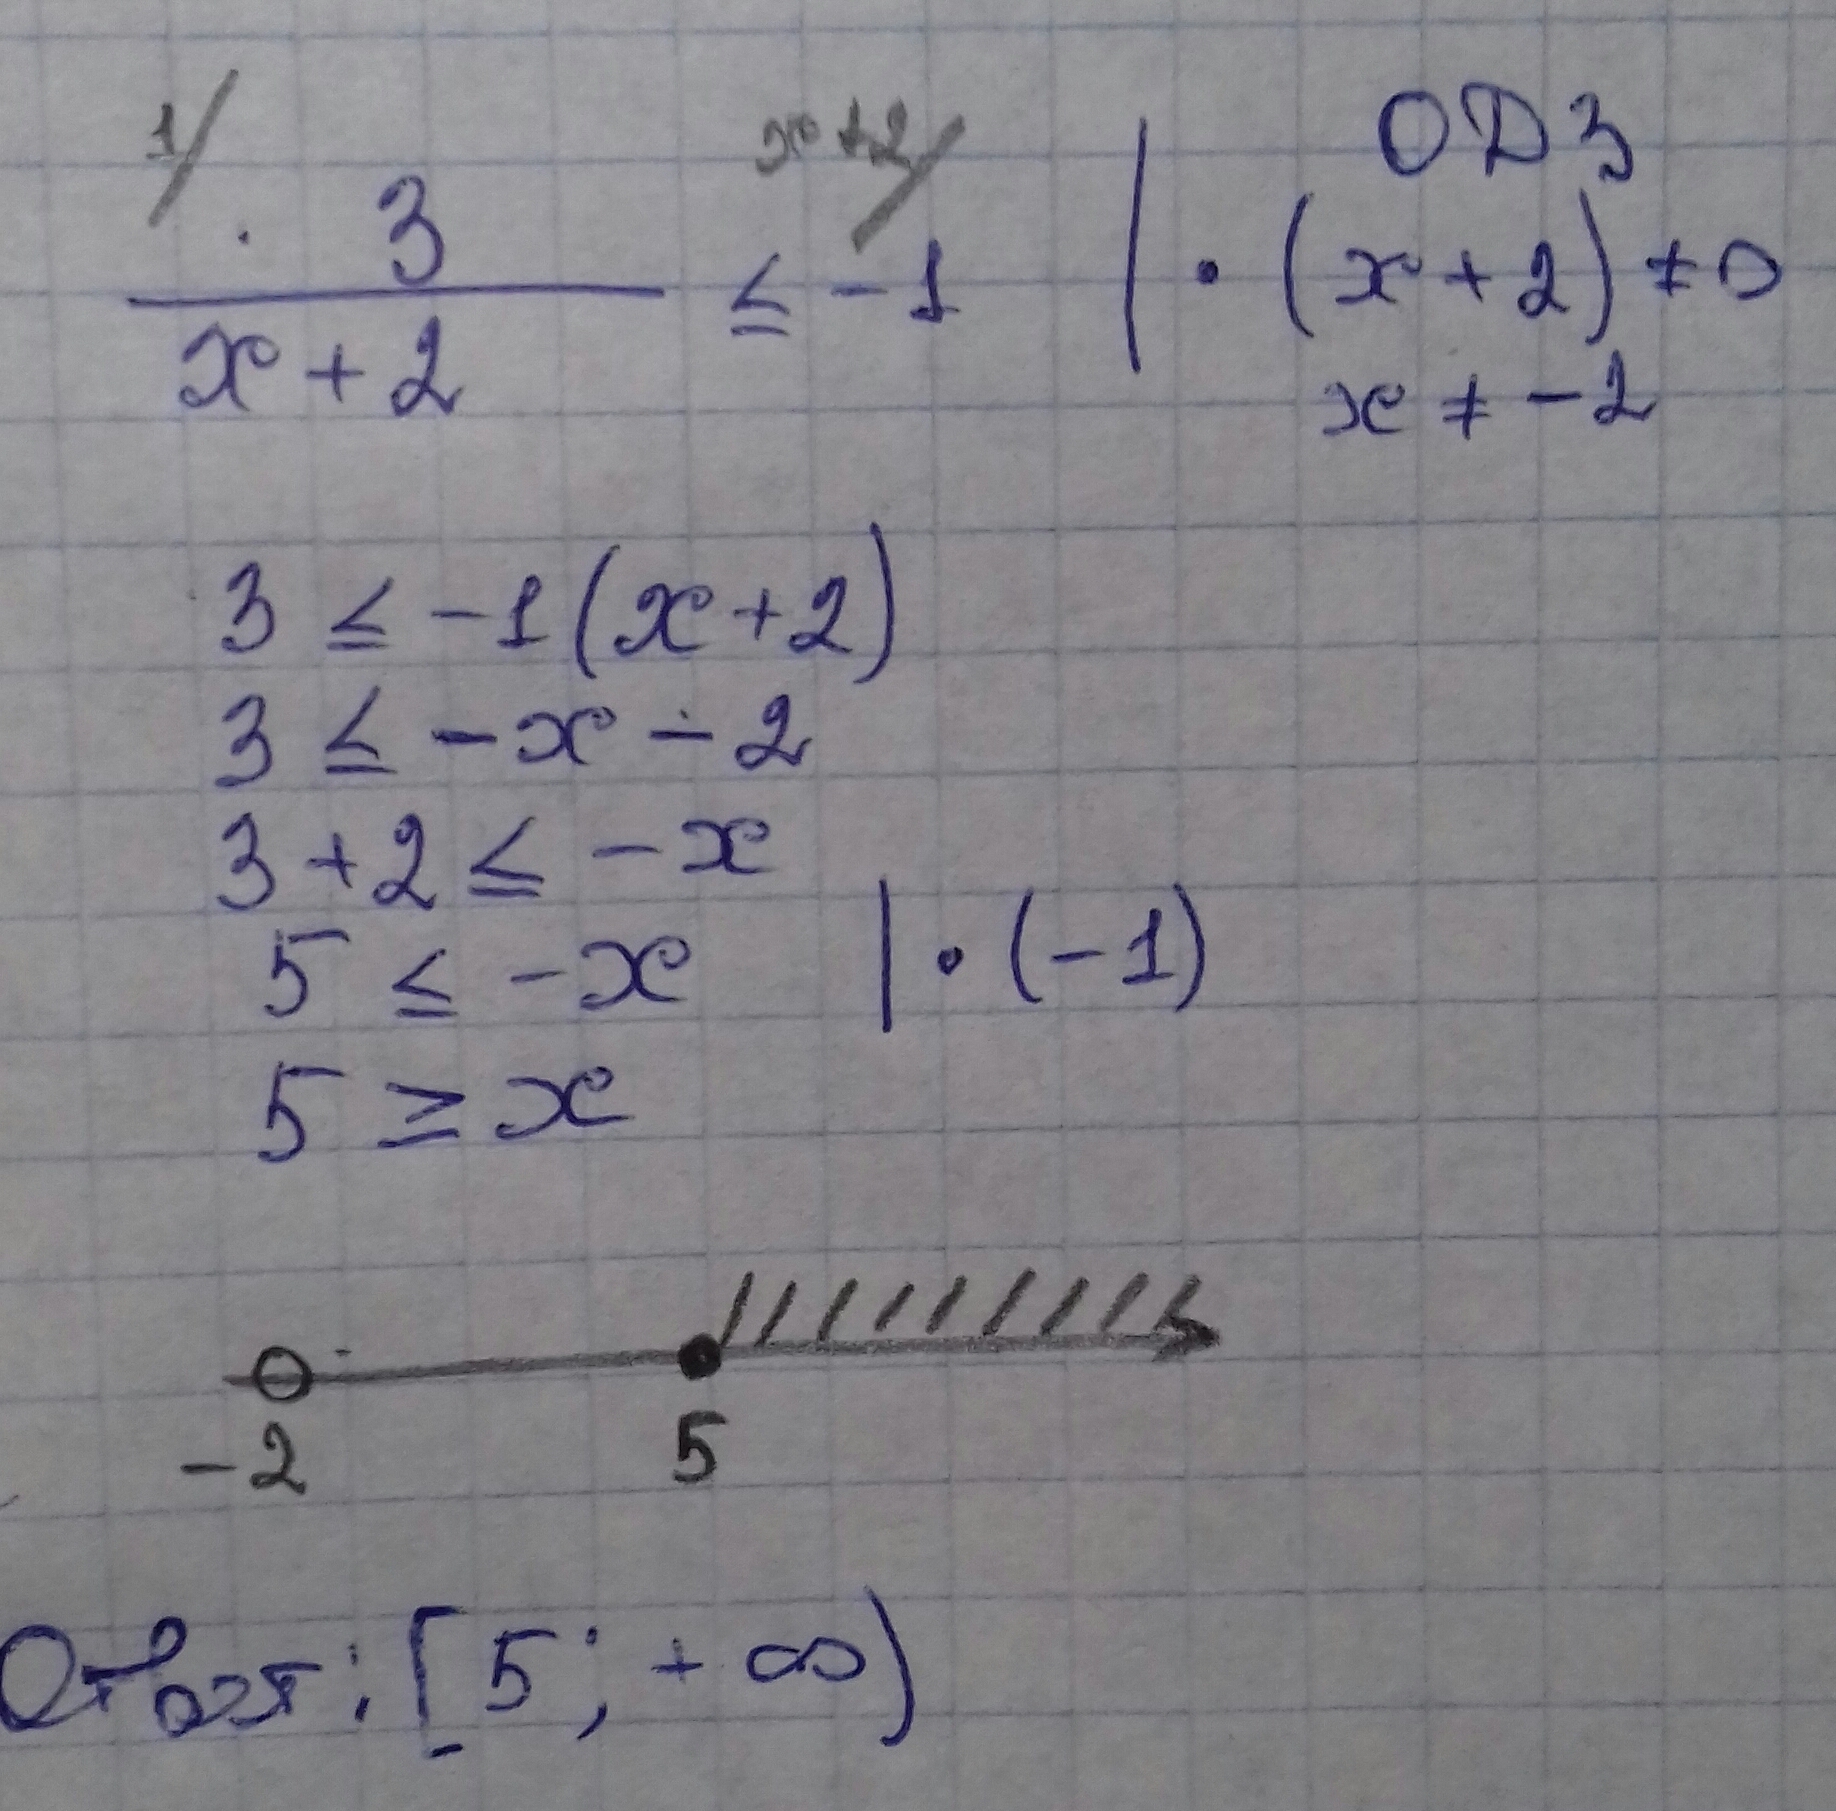 1/ x+2/ ОДЗ
3/(x+2) ≤ -1 | · (x+2) ≠ 0
x ≠ -2
3 ≤ -1(x+2)
3 ≤ -x - 2
3 + 2 ≤ -x
5 ≤ -x | · (-1)
5 ≥ x
-2 5
Ответ: [5; +∞)